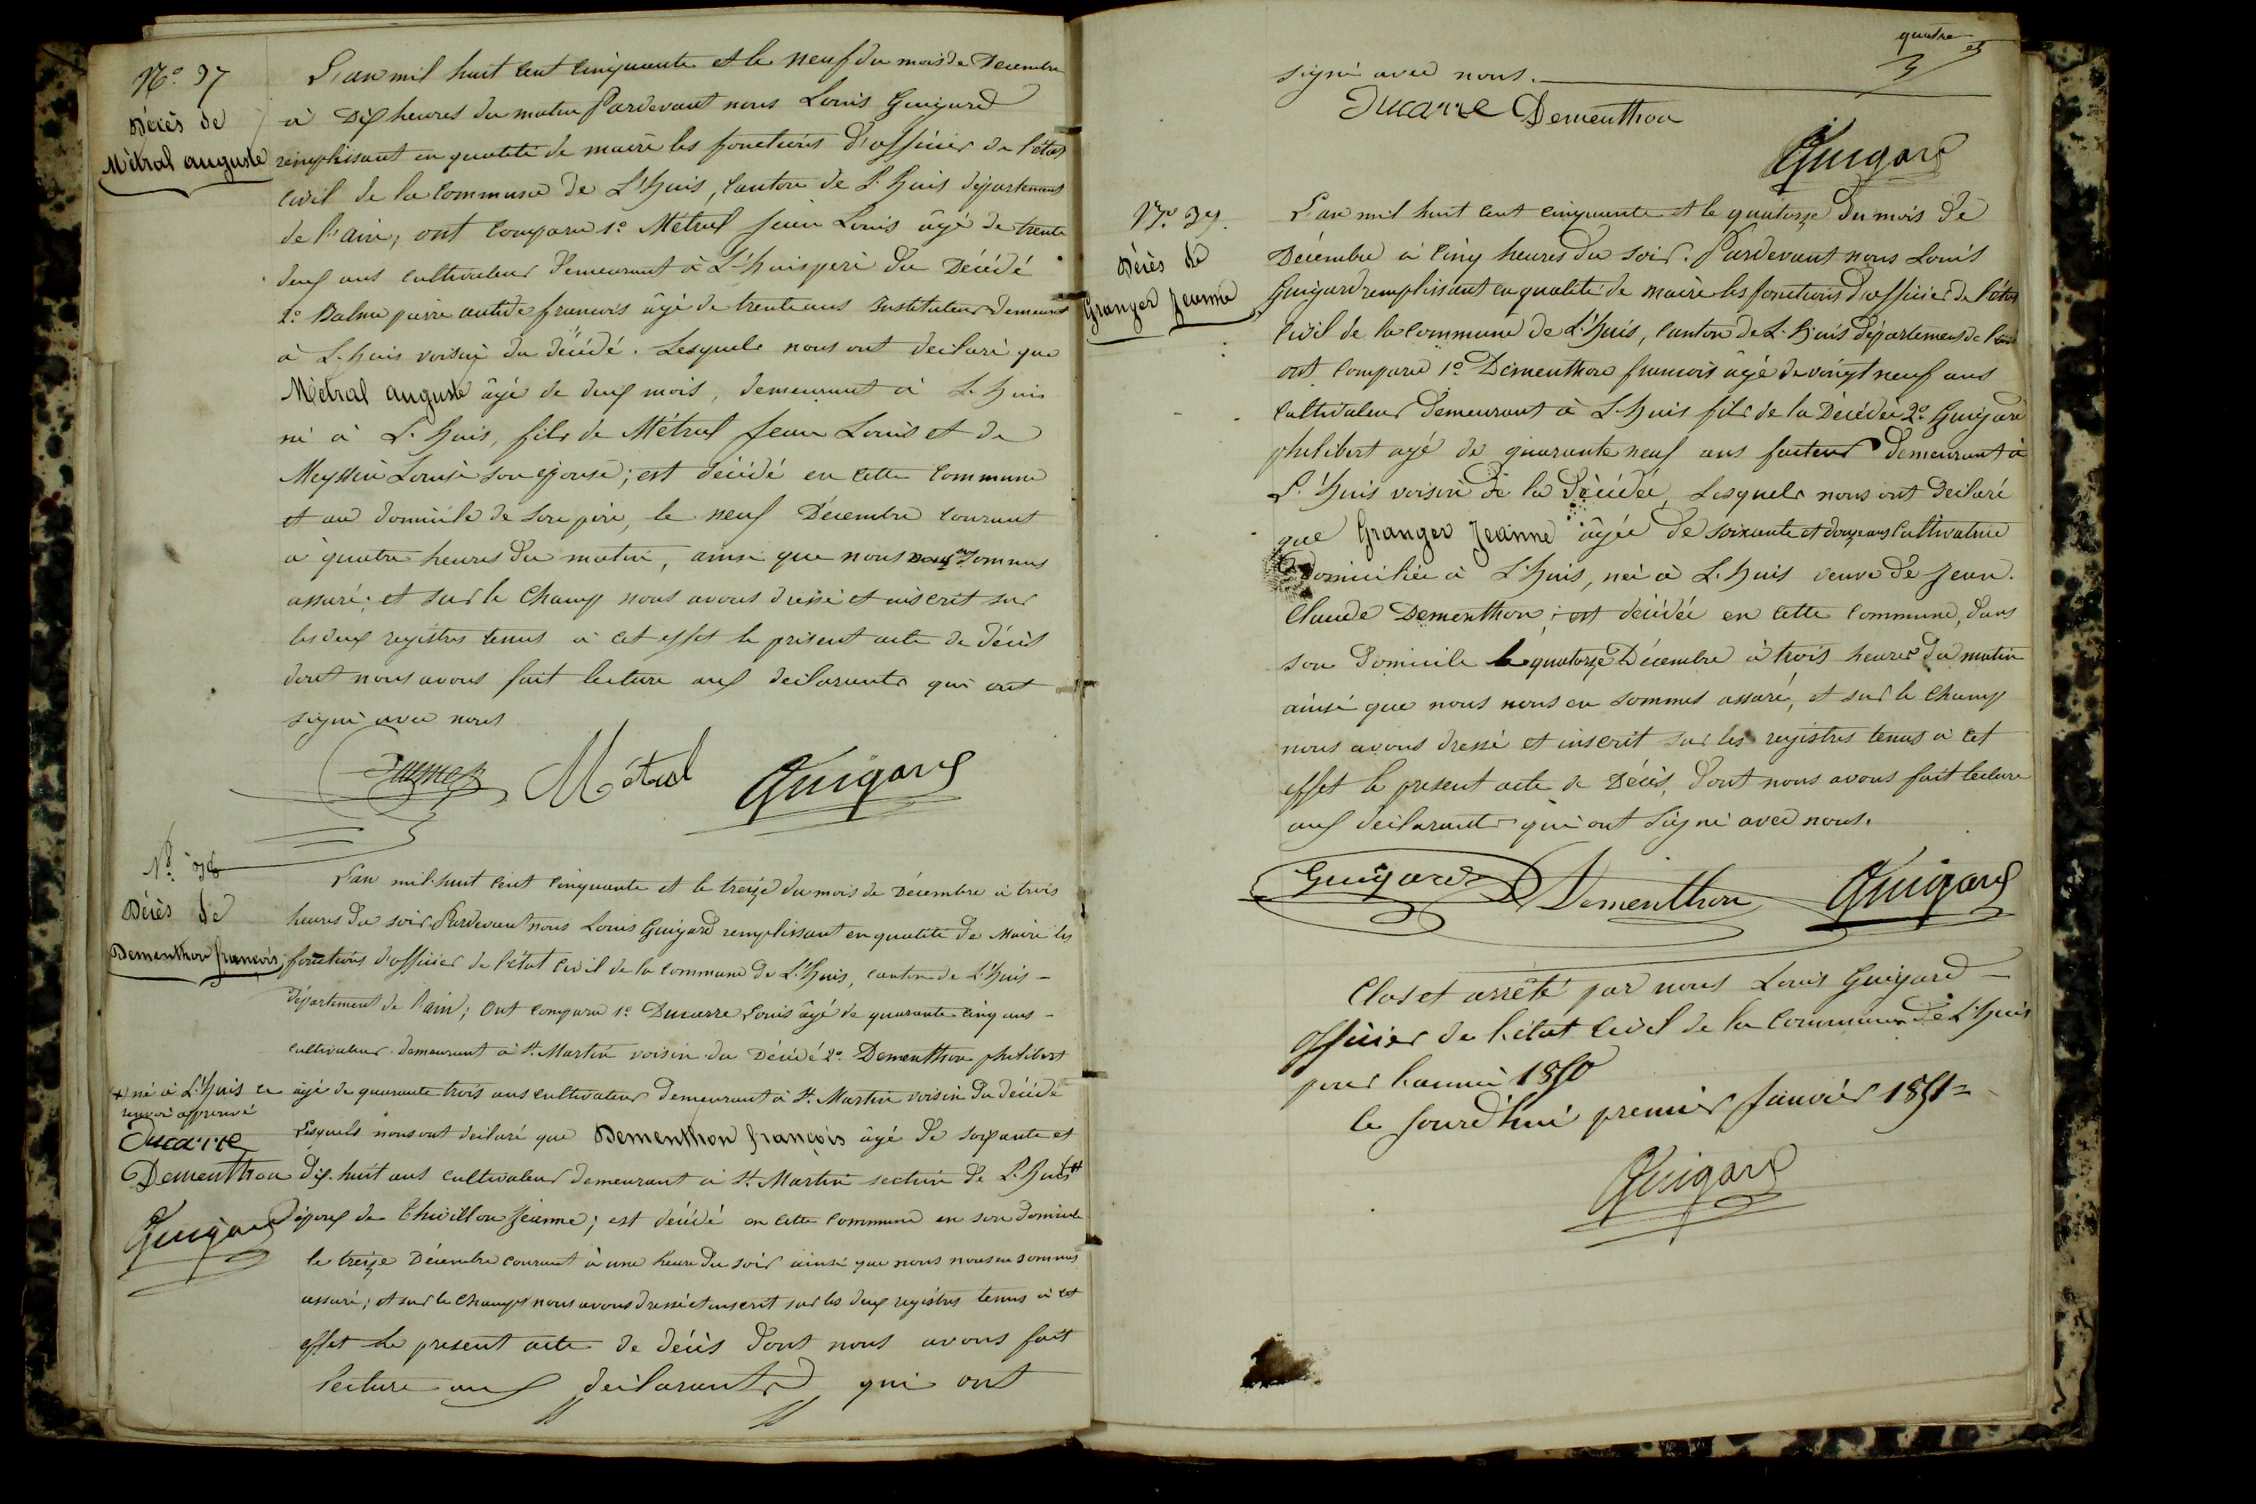 N.° 37
Décès de
Métral auguste
L'an mil huit cent cinquante et le neuf du mois de Décembre
à Dix heures du matin Pardevant nous Louis Guigard
remplissant en qualité de maire les fonctions d'officier de l'état
civil de la commune de L'huis, canton de L'huis département
de l'ain, ont comparu 1.° Métral Jean Louis âgé de trente
deux ans cultivateur demeurant à L'huis père du Décédé
2.° Balme pierre antide francois âgé de trente ans Instituteur demeurant
à L'huis voisin du décédé. Lesquels nous ont déclaré que
Métral auguste âgé de deux mois, demeurant à L'huis
né à L'huis, fils de Métral Jean Louis et de
Louise son épouse; est décédé en cette commune
et au domicile de son père, le neuf Décembre courant
à quatre heures du matin, ainsi que nous nous en sommes
assuré; et sur le champ nous avons dressé et inscrit sur
les deux registres tenus à cet effet le présent acte de décès
dont nous avons fait lecture aux déclarants qui ont
signé avec nous
Métral Guigard
N.° 38
Décès de
Dementhon francois
L'an mil huit cent cinquante et le treize du mois de Décembre à trois
heures du soir. Pardevant nous Louis Guigard remplissant en qualité de Maire les
fonctions d'officier de l'état civil de la commune de L'huis, canton de L'huis -
département de l'ain; Ont comparu 1.° Ducarre Louis âgé de quarante cinq ans -
cultivateur demeurant à St. Martin voisin du Décédé 2.° Dementhon philibert
âgé de quarante trois ans cultivateur demeurant à St. Martin voisin du décédé
Lesquels nous ont déclaré que Dementhon françois âgé de soixante et
dix huit ans cultivateur demeurant à St. Martin section de L'huis +
époux de Chivillon Jeanne; est décédé en cette commune en son domicile
le treize Décembre courant à une heure du soir ainsi que nous nous en sommes
assuré; et sur le champ nous avons dressé et inscrit sur les deux registres tenus à cet
effet le présent acte de décès dont nous avons fait
lecture aux déclarants qui ont
+ né à L'huis ce
renvoi approuvé
Ducarre
Dementhon
Guigard
quatre
signé avec nous.
Ducarre Dementhon
Guigard
N.° 39.
Décès de
Granger Jeanne
L'an mil huit cent cinquante et le quatorze du mois de
Décembre à cinq heures du soir. Pardevant nous Louis
Guigard remplissant en qualité de maire les fonctions d'officier de l'état
civil de la commune de L'huis, canton de L'huis département de l'ain
ont comparu 1.° Dementhon francois âgé de vingt neuf ans
cultivateur demeurant à L'huis fils de la Décédée 2.° Guigard
philibert agé de quarante neuf ans facteur demeurant à
L'huis voisin de la Décédée, Lesquels nous ont déclaré
que Granger Jeanne âgée de soixante et douze ans cultivatrice
domiciliée à L'huis, née à L'huis veuve de Jean.
Claude Dementhon; est décédée en cette commune, dans
son domicile le quatorze Décembre à trois heures du matin
ainsi que nous nous en sommes assuré, et sur le champ
nous avons dressé et inscrit sur les registres tenus à cet
effet le présent acte de Décès, dont nous avons fait lecture
aux déclarants qui ont signé avec nous.
Guigard Dementhon Guigard
Clos et arrêté par nous Louis Guigard -
officier de l'état civil de la commune de L'huis
pour l'année 1850
ce jourd'hui premier Janvier 1851 =
Guigard